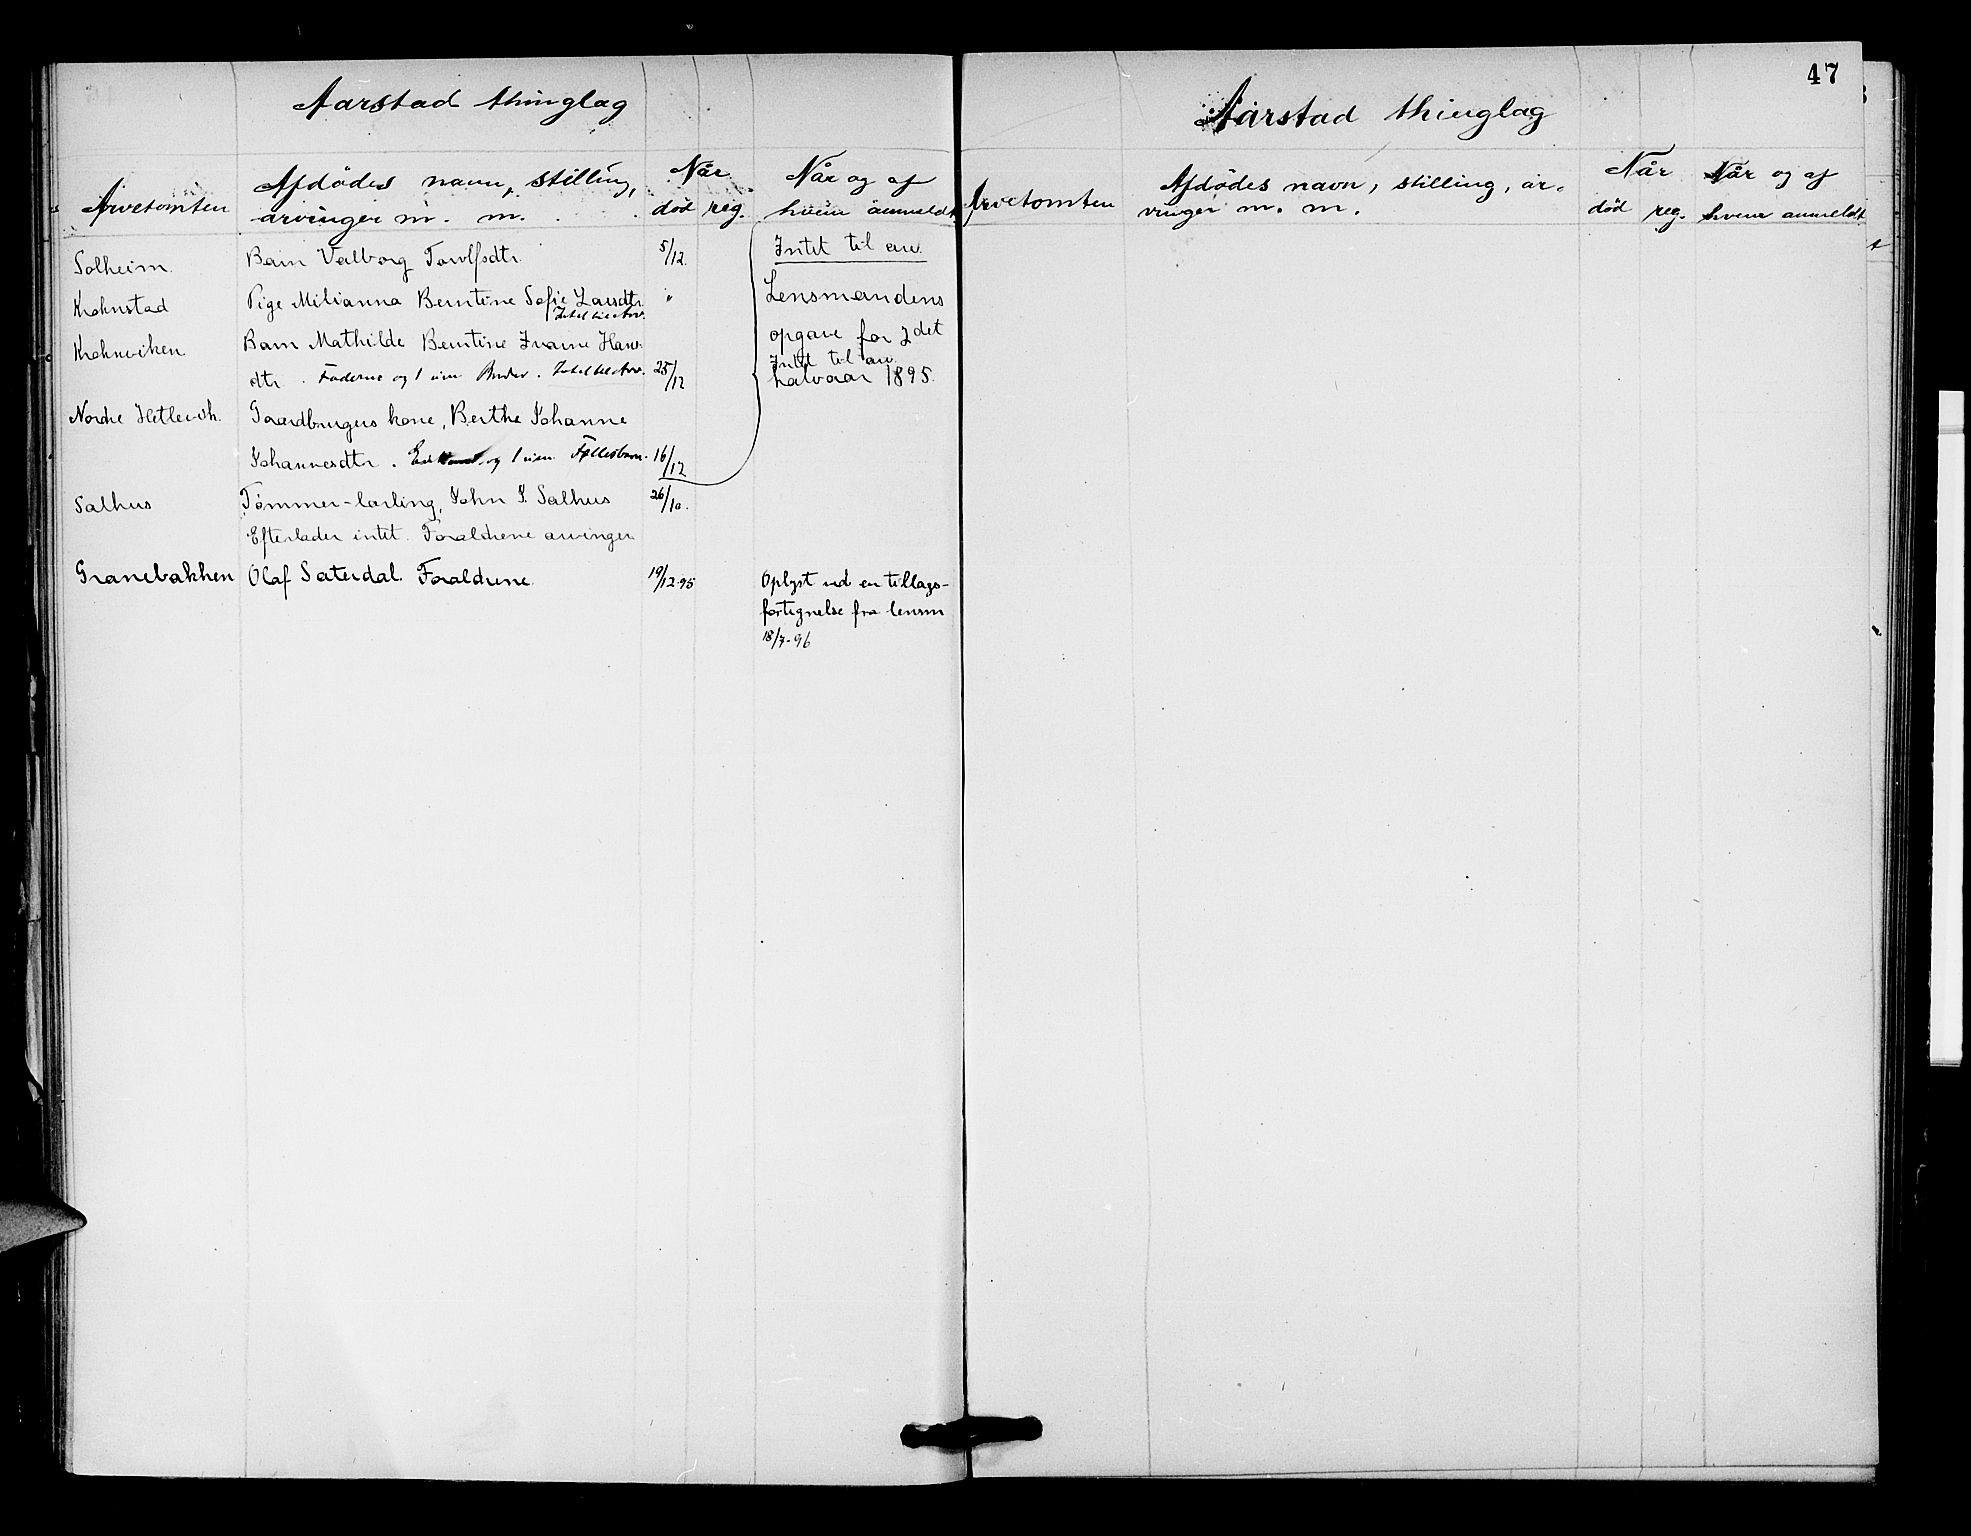 Aarstad thinglag
Arvetomten
Afdödes navn, stilling,
arvinger m. m.
Når
død reg.
Når og af
hvem anmeldt
Solheim
Barn Valborg
5/12.
Intet til arv.
Krohnstad
Pige Milianna Berntine Sofie Larsdtr.
"
Lensmandens
Intet til Arv.
Krohnviken
Barn Mathilde Berntine
opgave for 2det
Intet til arv.
dtr. Faderne og 1 um Intet til Arv.
25/12
halvaar 1895.
Nordre
Gaardbrugers kone, Berthe Johanne
Johannesdtr. og 1 um Fællesbarn.
16/12
Salhus
Tømmer-lærling, John J. Salhus
26/10.
Efterlader intet. Forældrene arvinger
Granebakken
Olaf Saterdal. Forældrene.
19/12.95
Oplyst ved en tillægs-
fortegnelse fra lensm
18/7-96
47
Aarstad thinglag
Arvetomten
Afdödes navn, stilling, ar-
vinger m. m.
Når
død reg.
Når og af
hvem anmeldt